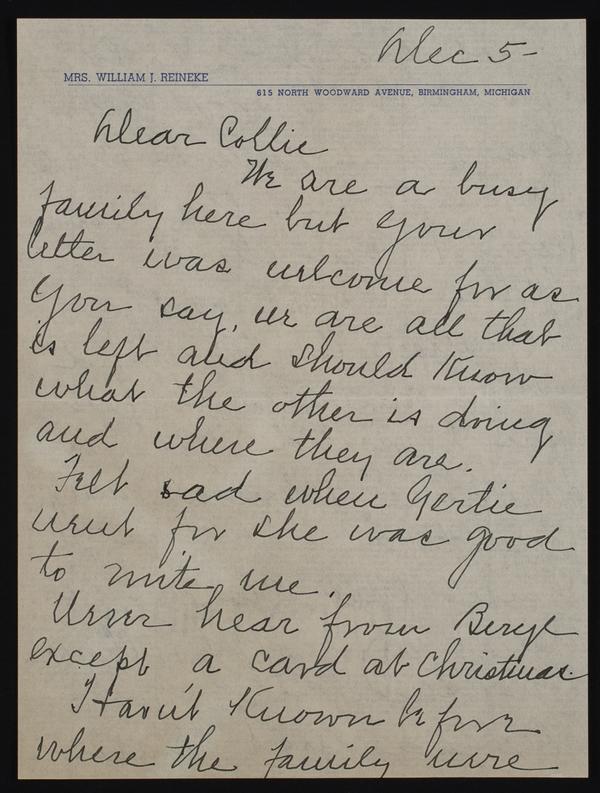 Dec 5-
MRS. WILLIAM J. REINEKE
615 NORTH WOODWARD AVENUE, BIRMINGHAM, MICHIGAN
Dear Collie
We are a busy
family here but your
letter was welcome for as
you say, we are all that
is left and should know
what the other is doing
and where they are.
Felt sad when Gertie
went for she was good
to write me.
Never hear from Beryl
except a card at Christmas.
Havn't known before
where the family were